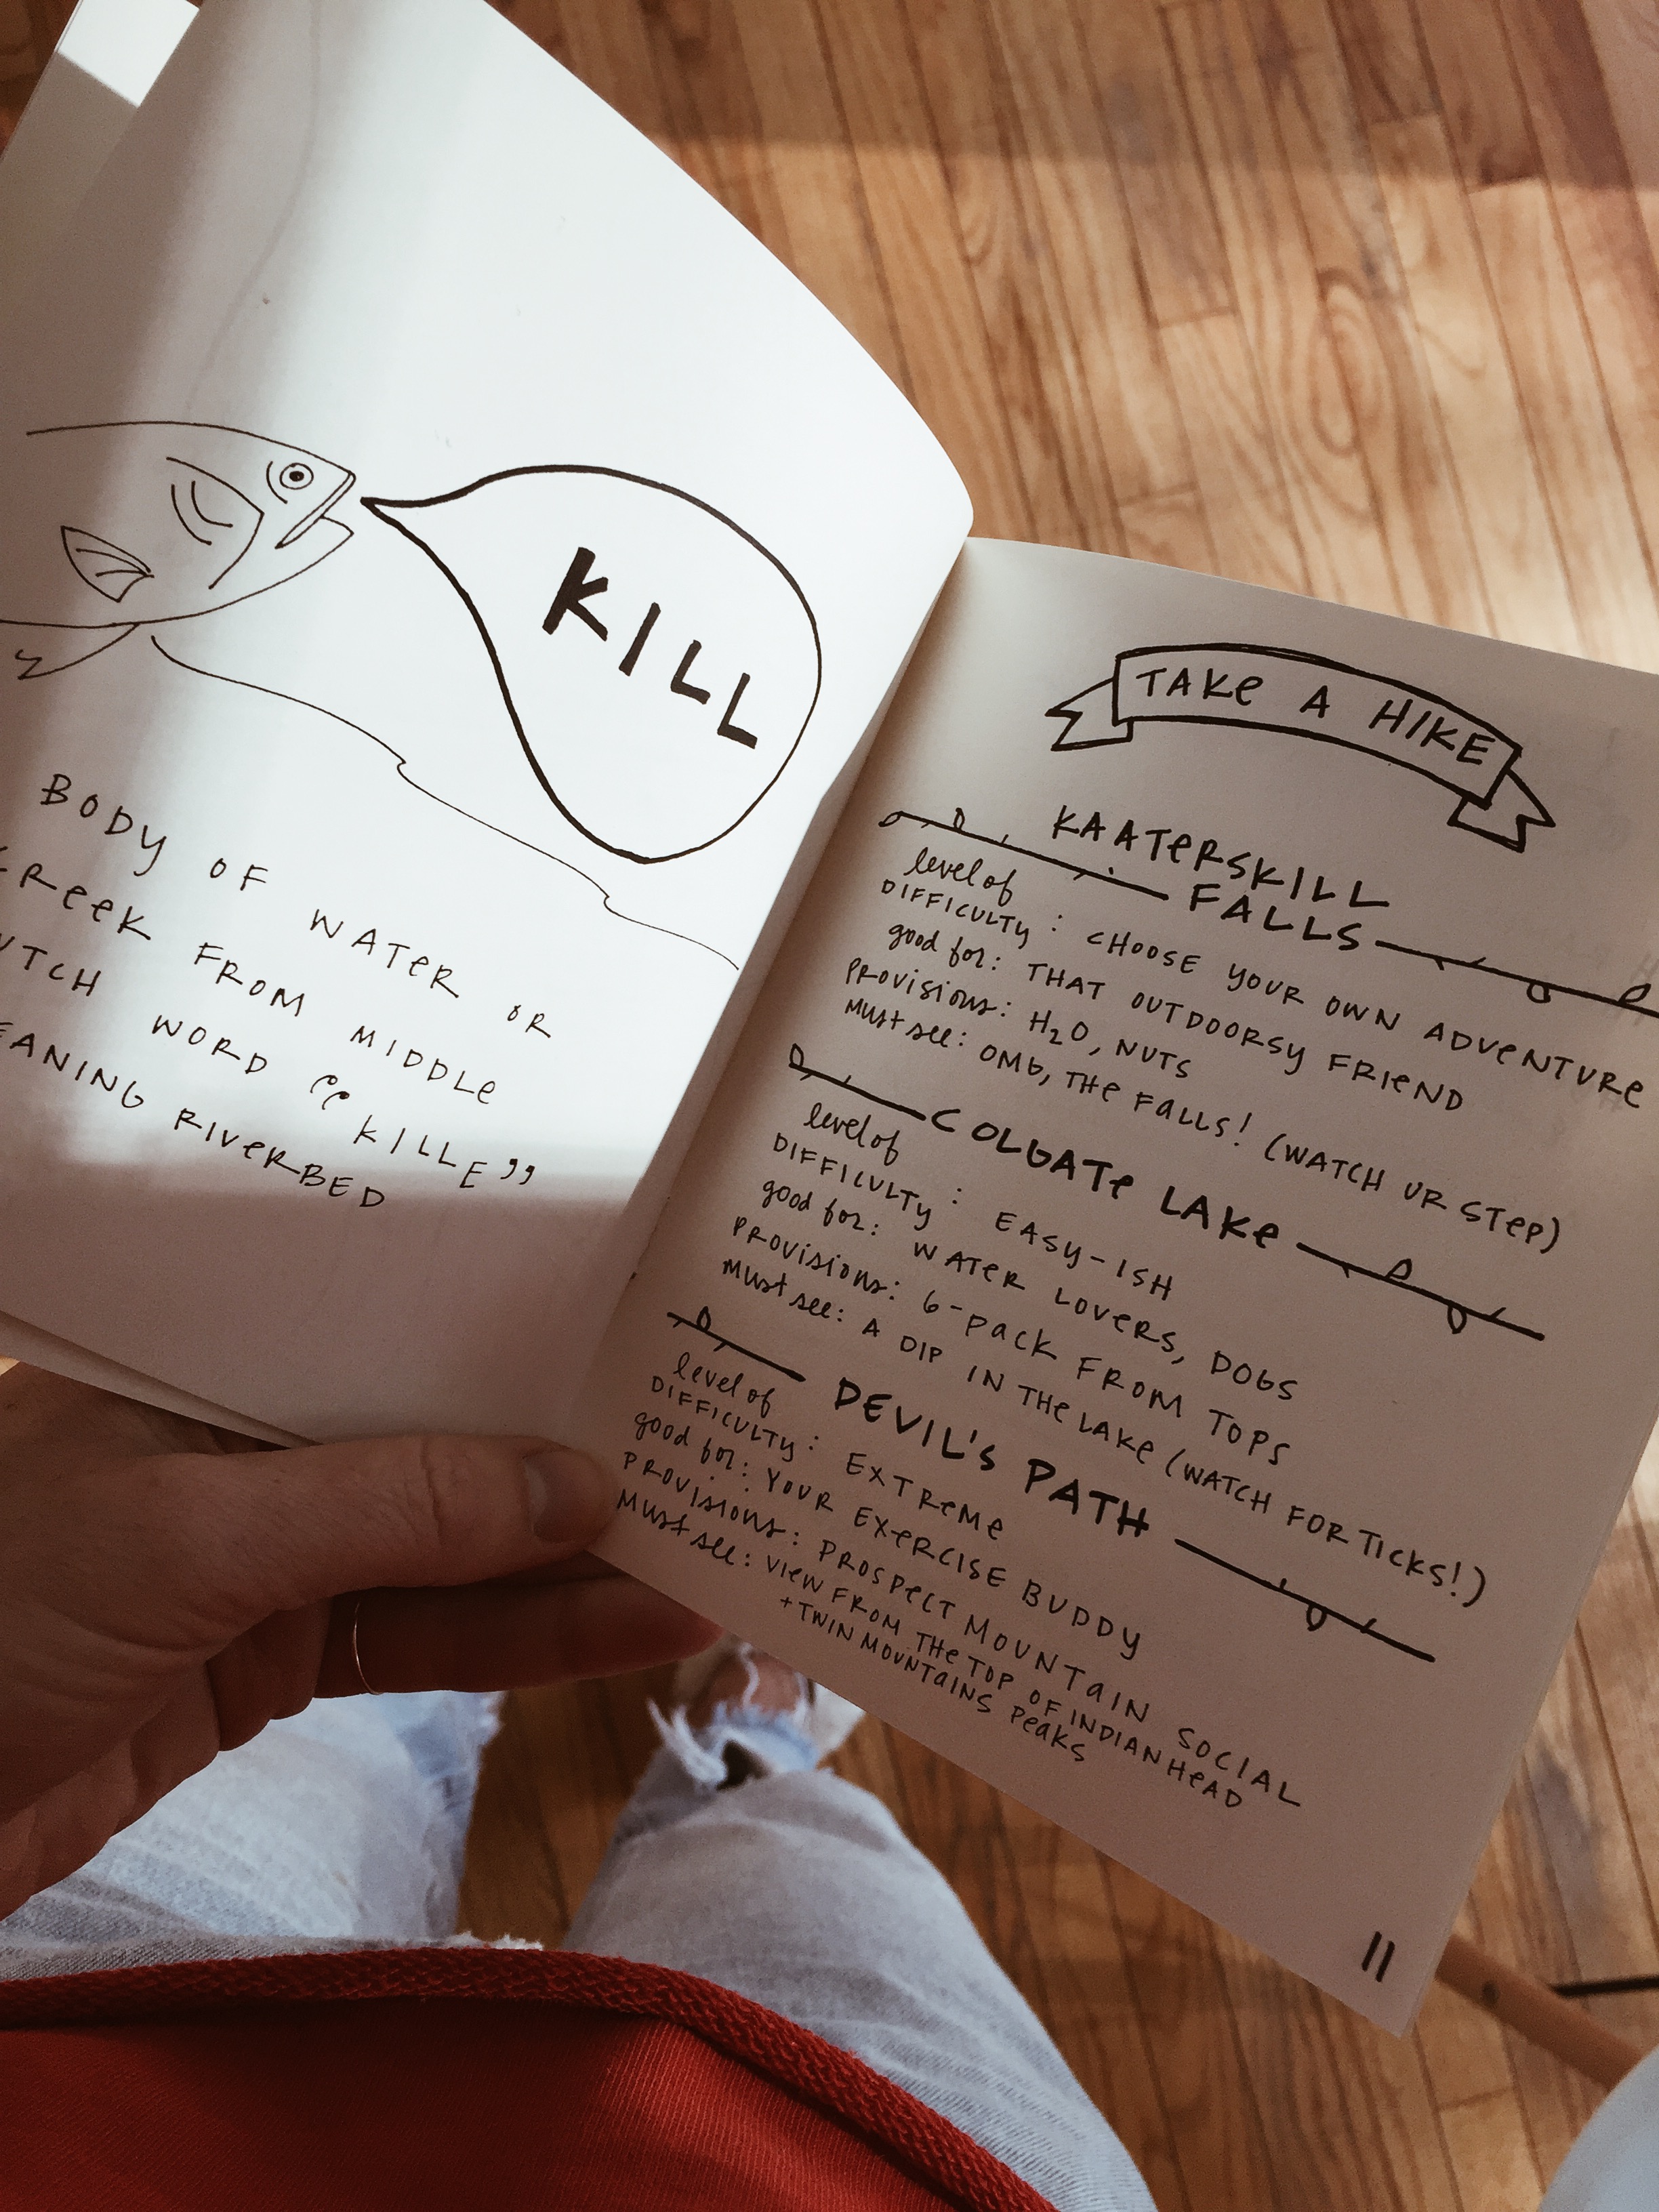 KILL
BODY OF WATER OR
CREEK FROM MIDDLE
WORD “KILLE”
RIVERBED
TAKE A HIKE
KAATERSKILL
FALLS
level of
DIFFICULTY: CHOOSE YOUR OWN ADVENTURE
good for: THAT OUTDOORSY FRIEND
PROVISIONS: H2O, NUTS
MUST see: OMG, THE FALLS! (WATCH UR STEP)
COLGATE LAKE
level of
DIFFICULTY: EASY-ISH
good for: WATER LOVERS, DOGS
PROVISIONS: 6-PACK FROM TOPS
MUST see: A DIP IN THE LAKE (WATCH FOR TICKS!)
DEVIL'S PATH
level of
DIFFICULTY: EXTREME
good for: YOUR EXERCISE BUDDY
PROVISIONS: PROSPECT MOUNTAIN SOCIAL
MUST see: VIEW FROM THE TOP OF INDIAN HEAD
+ TWIN MOUNTAINS PEAKS
11